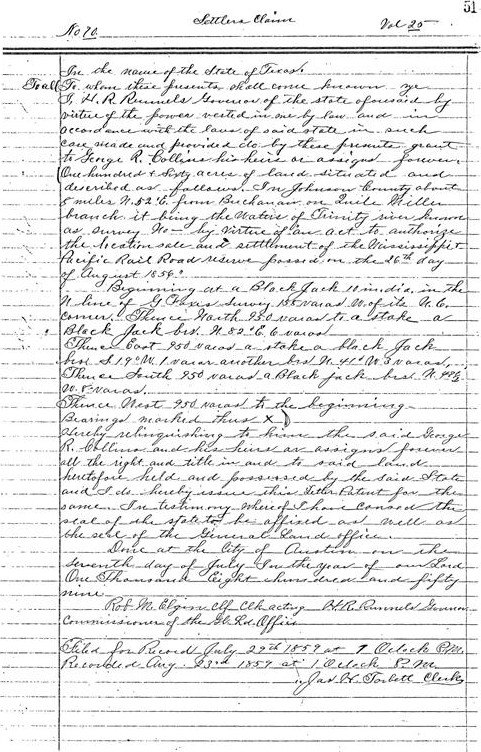 51
Settlers Claim
No 70. Vol 25
In the name of the State of Texas.
To all To whom these presents shall come known ye
I, H. R. Runnels Governor of the state aforesaid by
virtue of the power vested in me by law and in
accordance with the laws of said state in such
case made and provided do by these presents grant
to George R. Collins his heirs or assigns forever
One hundred & Sixty acres of land situated and
described as follows. In Johnson County about
5 miles N. 52° E. from Buchanan on Quile Miller
branch it being the Waters of Trinity river known
as survey No — by Virtue of an act to authorize
the location sale and settlement of the Mississippi &
Pacific Rail Road reserve passed on the 26th day
of August 1856."
Beginning at a Black Jack 10 in dia. in the
N line of G survey varas W. of its N. E.
corner. Thence North 950 varas to a stake a
Black Jack brs. N. 82° E. 6 varas
Thence East 950 varas a stake a black Jack
brs S 19° W. 1 varas another brs N. 41° W 3 varas,
Thence South 950 varas a Black jack brs. N.
W. varas.
Thence West 950 varas to the beginning
Bearings marked thus X
Hereby relinquishing to him the said George
R. Collins and his heirs or assigns forever
all the right and title in and to said land
heretofore held and possessed by the said State
and I do hereby issue this Letter Patent for the
same. In testimony Whereof I have caused the
seal of the state to be affixed as well as
the seal of the General Land office.
Done at the City of Austin on the
seventh day of July In the year of our Lord
One Thousand Eight hundred and fifty
nine
Rob. M. Elgin Clf Clk acting H. R. Runnels Governor
Commissioner of the Gl. Ld. Office
Filed for Record July 29th 1859 at 7 Oclock P.M.
Recorded Aug. 23rd 1859 at 1 Oclock P.M.
Jas W. Torbett Clerk